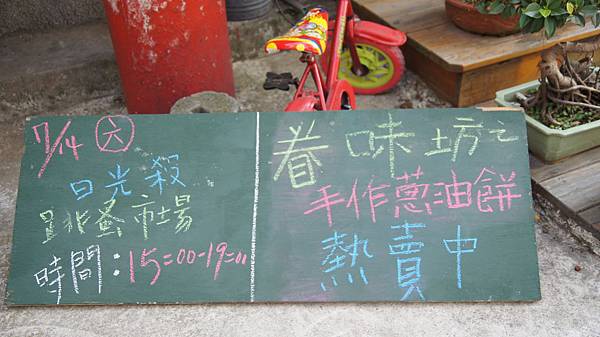 7/14 六
日光殺
跳蚤市場
時間:15:00-19:00
眷味坊之
手作蔥油餅
熱賣中